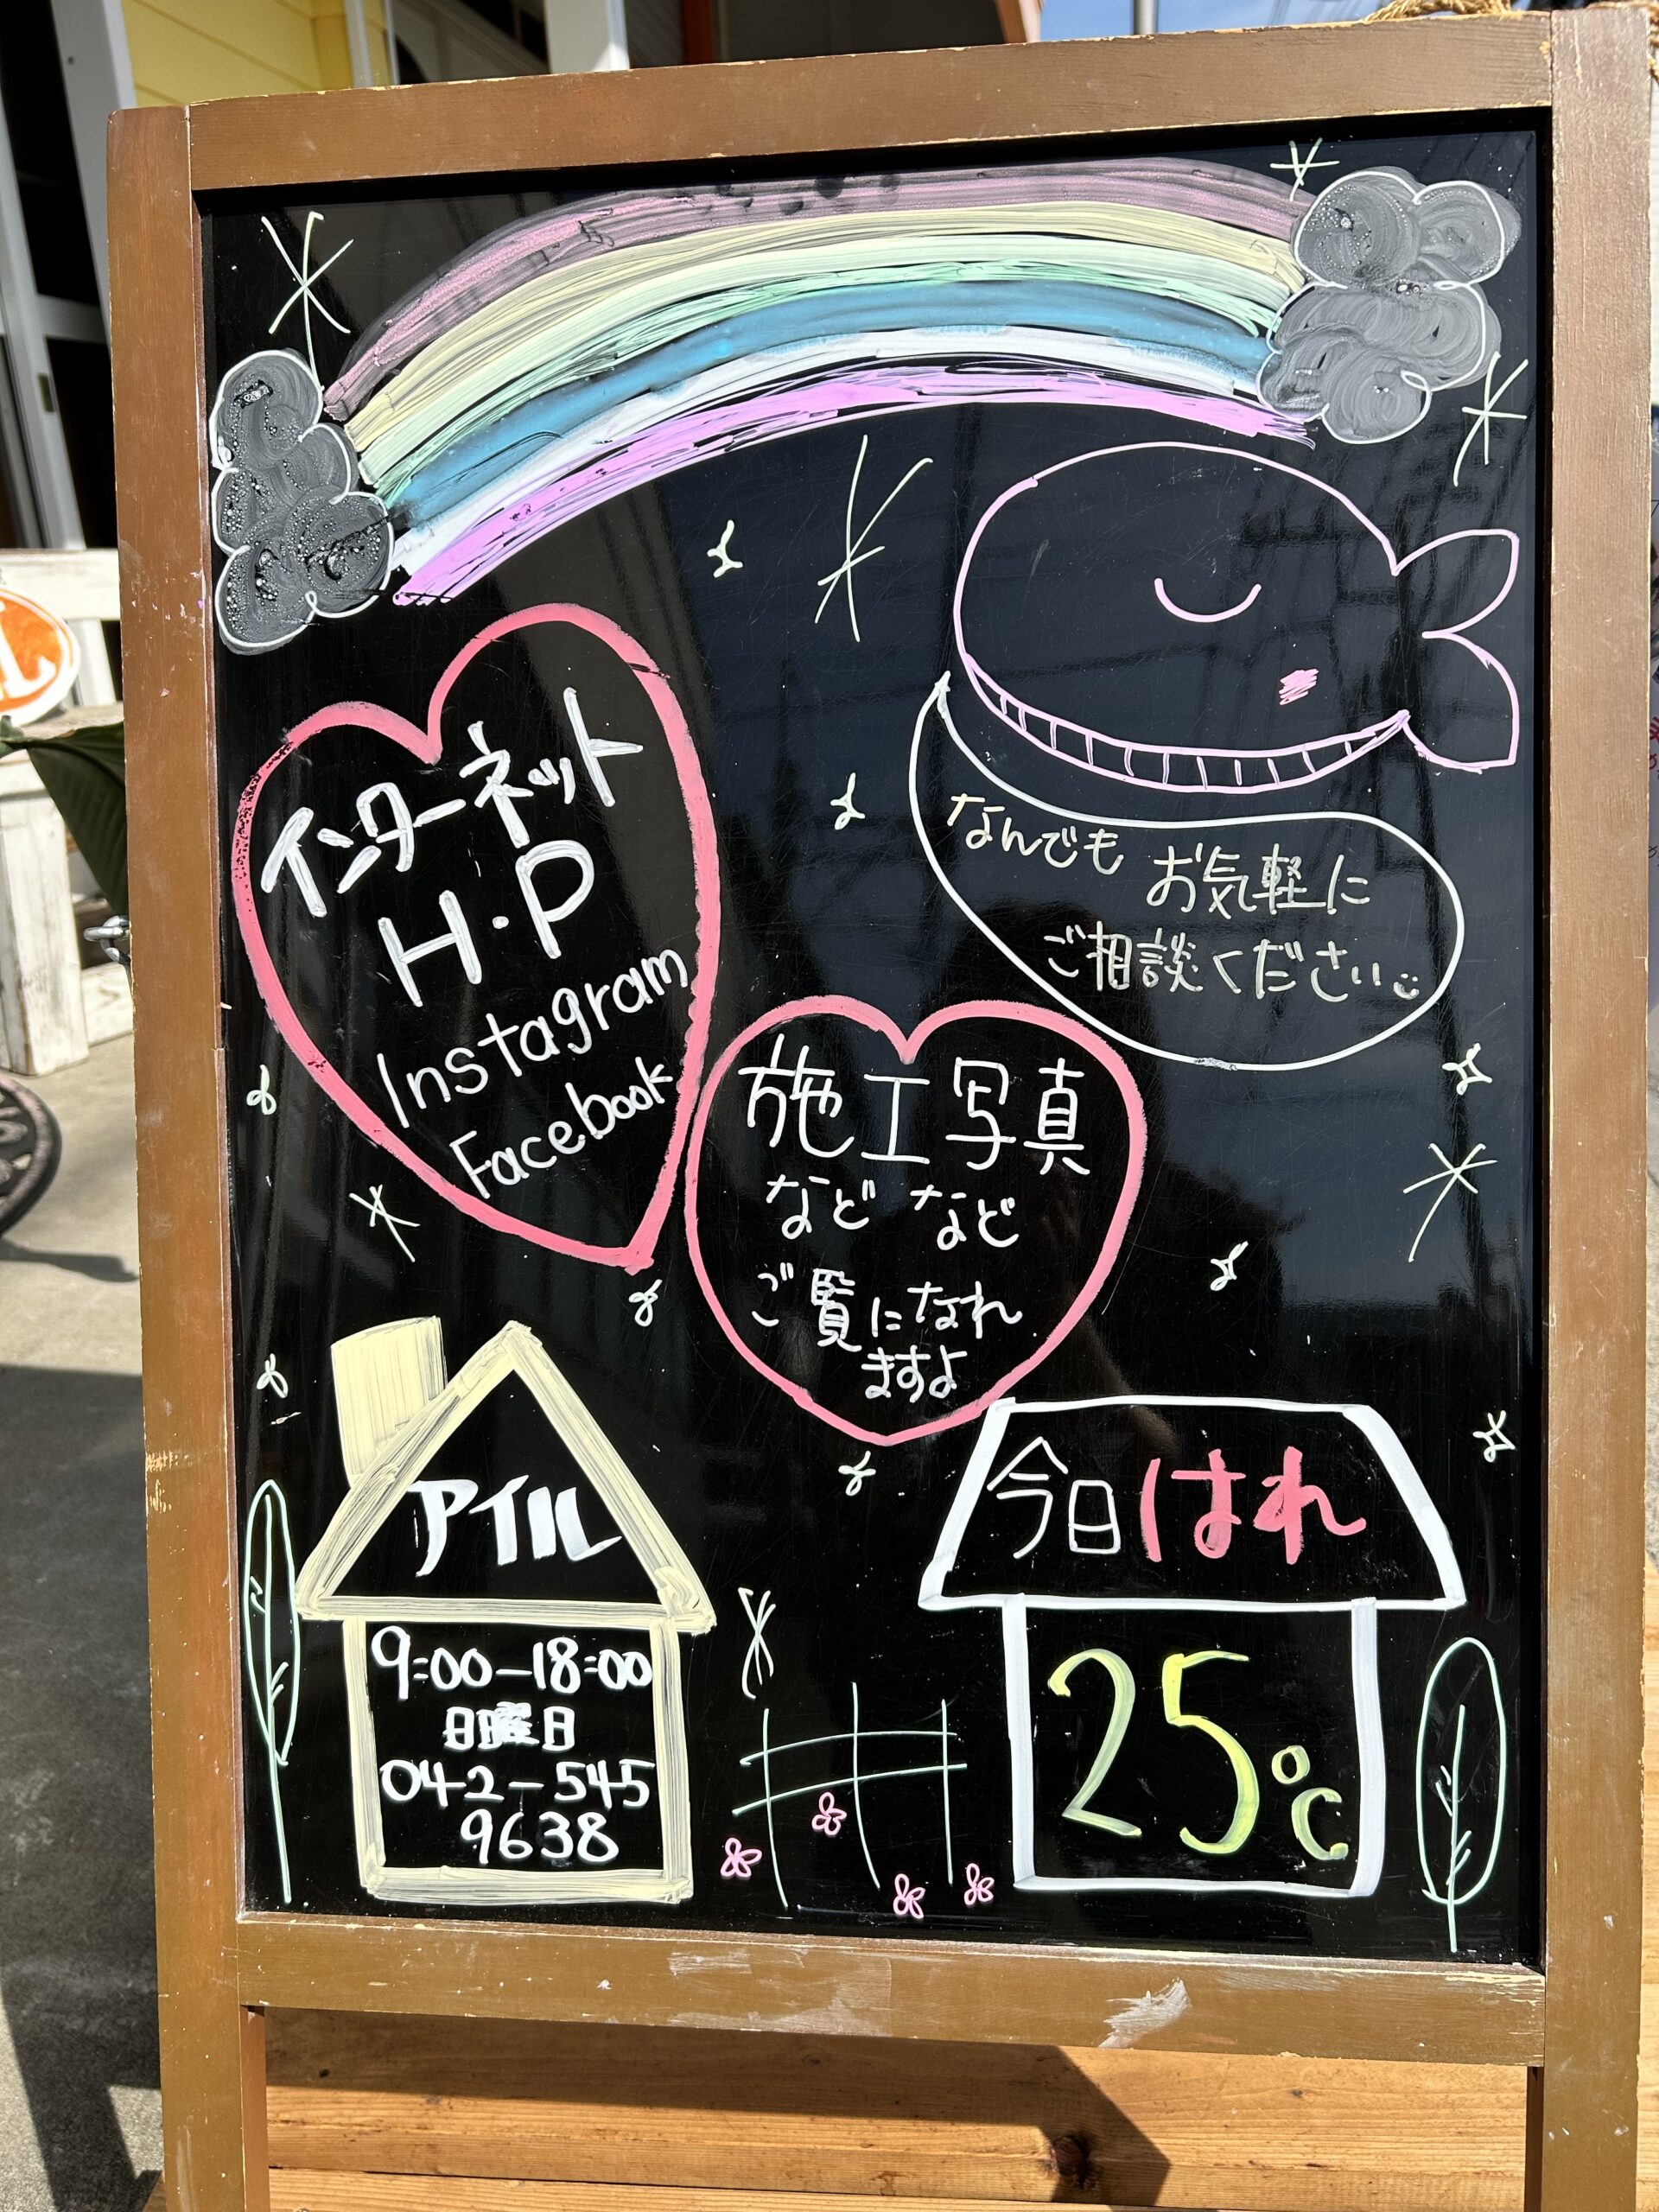 インターネット
H・P
Instagram
Facebook
なんでも お気軽に
ご相談ください
施工写真
など など
ご覧になれ
ますよ
アイル
9:00-18:00
日曜日
042-545
9638
今日はれ
25℃